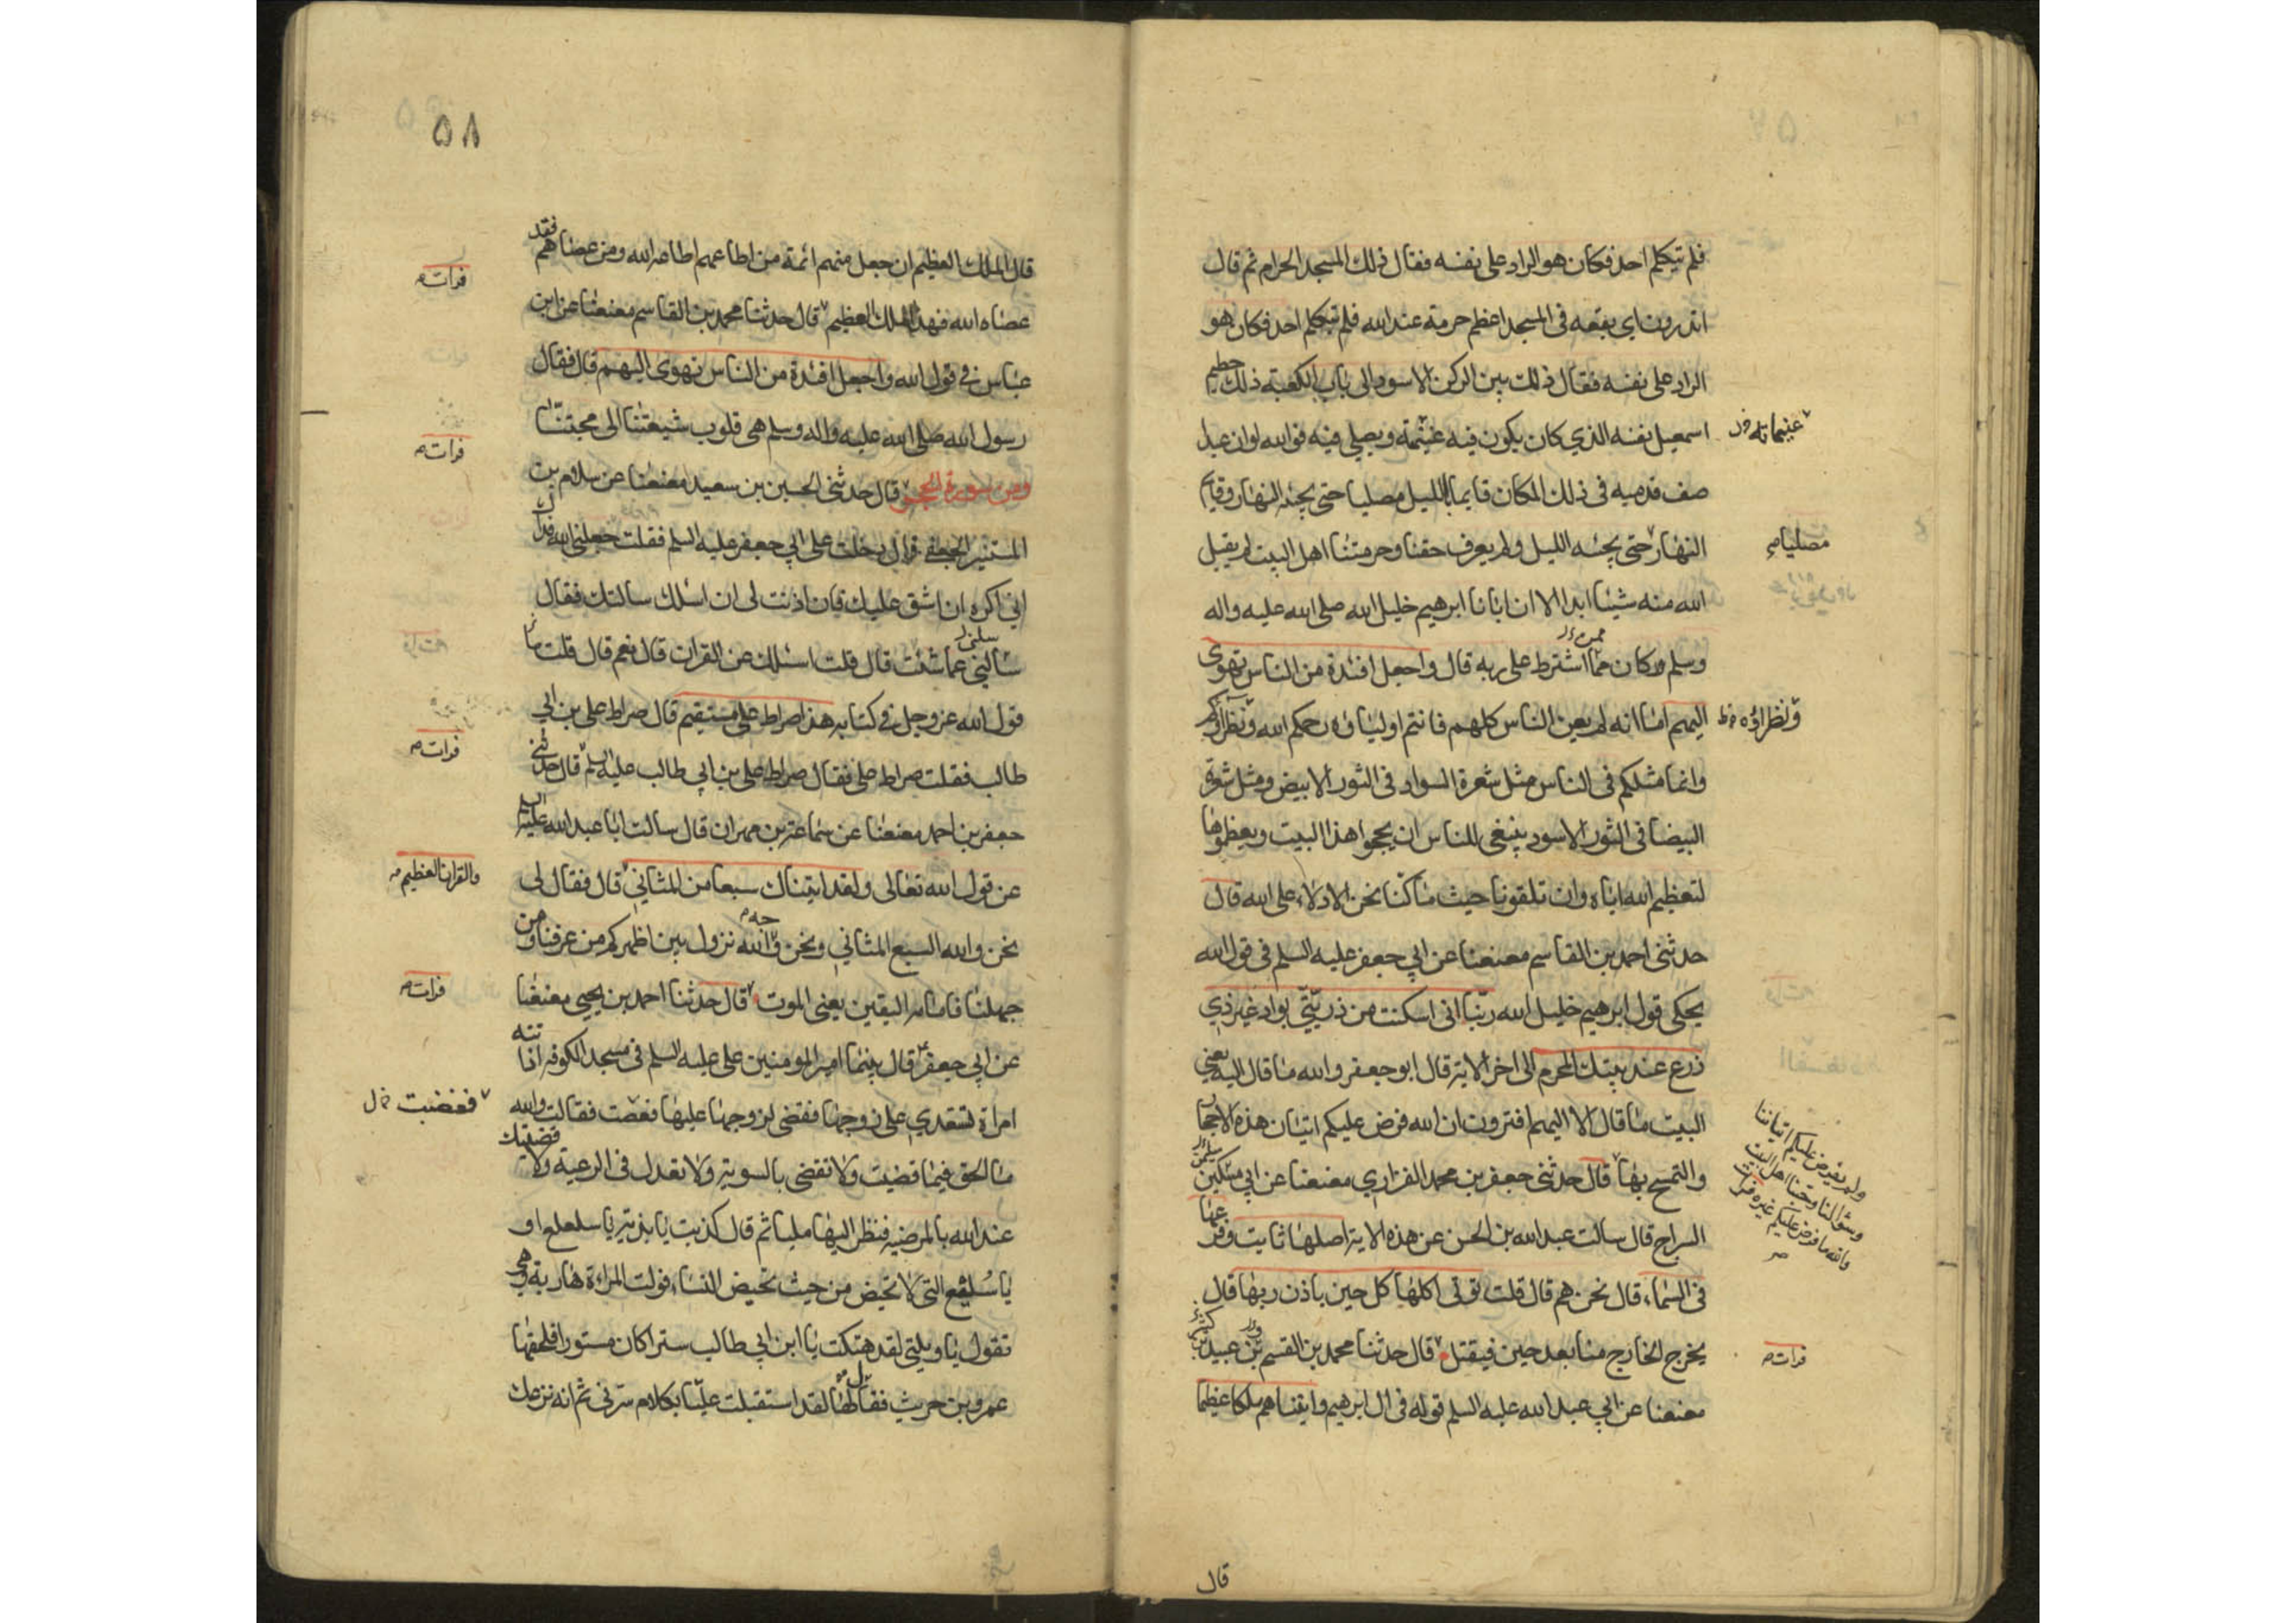 فلم يتكلم احد فكان هو الراد على نفسه فقال ذلك المسجد الحرام ثم قال
اتدرون اي بقعه في المسجد اعظم حرمة عند الله فلم يتكلم احد فكان هو
الراد على نفسه فقال ذلك بين الركن الاسود الى باب الكعبة ذلك حطيم
اسمعيل نفسه الذي كان يكون فيه غنيمة ويصلي فيه فوالله لو ان عبدا
غنيماته
صف قدميه في ذلك المكان قايما بالليل مصليا حتى يجنه النهار وقايم
النهار حتى يجنه الليل ولم يعرف حقنا وحرمتنا اهل البيت لم يقبل
مصليا
الله منه شيئا ابدا الا ان ابانا ابرهيم خليل الله صلى الله عليه واله
وسلم وكان مما اشترط على ربه قال واجعل افئدة من الناس تهوى
اليهم اما انه لم يعن الناس كلهم فانتم اولياؤه رحمكم الله ونظراؤكم
ونظراؤه
وانما مثلكم في الناس مثل شعرة السواد في الثور الابيض ومثل شعرة
البيضا في الثور الاسود ينبغي للناس ان يحجوا هذا البيت ويعظموها
لتعظيم الله اياه وان تلقونا حيث ما كنا نحن الادلاء على الله قال
حدثني احمد بن القاسم معنعنا عن ابي جعفر عليه السلم في قول الله
يحكي قول ابرهيم خليل الله ربنا اني اسكنت من ذريتي بواد غير ذي
زرع عند بيتك المحرم الى اخر الاية قال ابو جعفر والله ما قال اليه يعني
البيت ما قال الا اليهم افترون ان الله فرض عليكم اتيان هذه الاحجار
والتمسح بها قال حدثني جعفر بن محمد الفزاري معنعنا عن ابي مسكين
ولم يفرض عليكم اتياننا
وسؤالنا وحبنا اهل البيت
والله ما فرض عليكم غيره
السراج قال سالت عبد الله بن الحسن عن هذه الاية اصلها ثابت وفرعها
في السماء قال نحن هم قال قلت تؤتي اكلها كل حين باذن ربها قال
يخرج الخارج منا بعد حين فيقتل قال حدثنا محمد بن القسم بن عبيد
فرات
معنعنا عن ابي عبد الله عليه السلم قوله في ال ابرهيم واتيناهم ملكا عظيما
قال
٥٨
قال الملك العظيم ان جعل منهم ائمة من اطاعهم اطاعه الله ومن عصاهم فقد
فرات
عصاه الله فهذا الملك العظيم قال حدثنا محمد بن القاسم معنعنا عن ابن
عباس في قول الله واجعل افئدة من الناس تهوى اليهم قال فقال
رسول الله صلى الله عليه واله وسلم هي قلوب شيعتنا الى محبتنا
فرات
ومن سورة الحجر قال حدثني الحسين بن سعيد معنعنا عن سلام بن
المستنير الجعفي قال دخلت على ابي جعفر عليه السلم فقلت جعلني الله فداك
اني اكره ان اشق عليك فان اذنت لي ان اسئلك سالتك فقال
سالني عما شئت قال قلت اسئلك عن القران قال نعم قال قلت ما
قول الله عز وجل في كتابه هذا صراط علي مستقيم قال صراط علي بن ابي
طالب فقلت صراط علي فقال صراط علي بن ابي طالب عليه السلم قال حدثني
فرات
جعفر بن احمد معنعنا عن سماعة بن مهران قال سالت ابا عبد الله عليه السلم
عن قول الله تعالى ولقد اتيناك سبعا من المثاني قال فقال لي
والقران العظيم
نحن والله السبع المثاني ونحن والله نزول بين اظهركم من عرفنا ومن
جهلنا فامامه اليقين يعني الموت قال حدثنا احمد بن يحيى معنعنا
فرات
عن ابي جعفر قال بينما امير المومنين علي عليه السلم في مسجد الكوفه اذا اتته
امراة تستعدي على زوجها فقضى لزوجها عليها فغضت فقالت والله
فغضبت
ما الحق فيما قضيت ولا تقضي بالسوية ولا تعدل في الرعية ولا قضيتك
عند الله بالمرضيه فنظر اليها مليا ثم قال كذبت يا بذية يا سلعلع او
يا سلقع التي لا تحيض من حيث تحيض النساء فولت المراءة هاربة وهي
تقول يا ويلتي لقد هتكت يا ابن ابي طالب سترا كان مستورا فلحقها
عمرو بن حريث فقال لها لقد استقبلت عليا بكلام سرني ثم انه نزعك